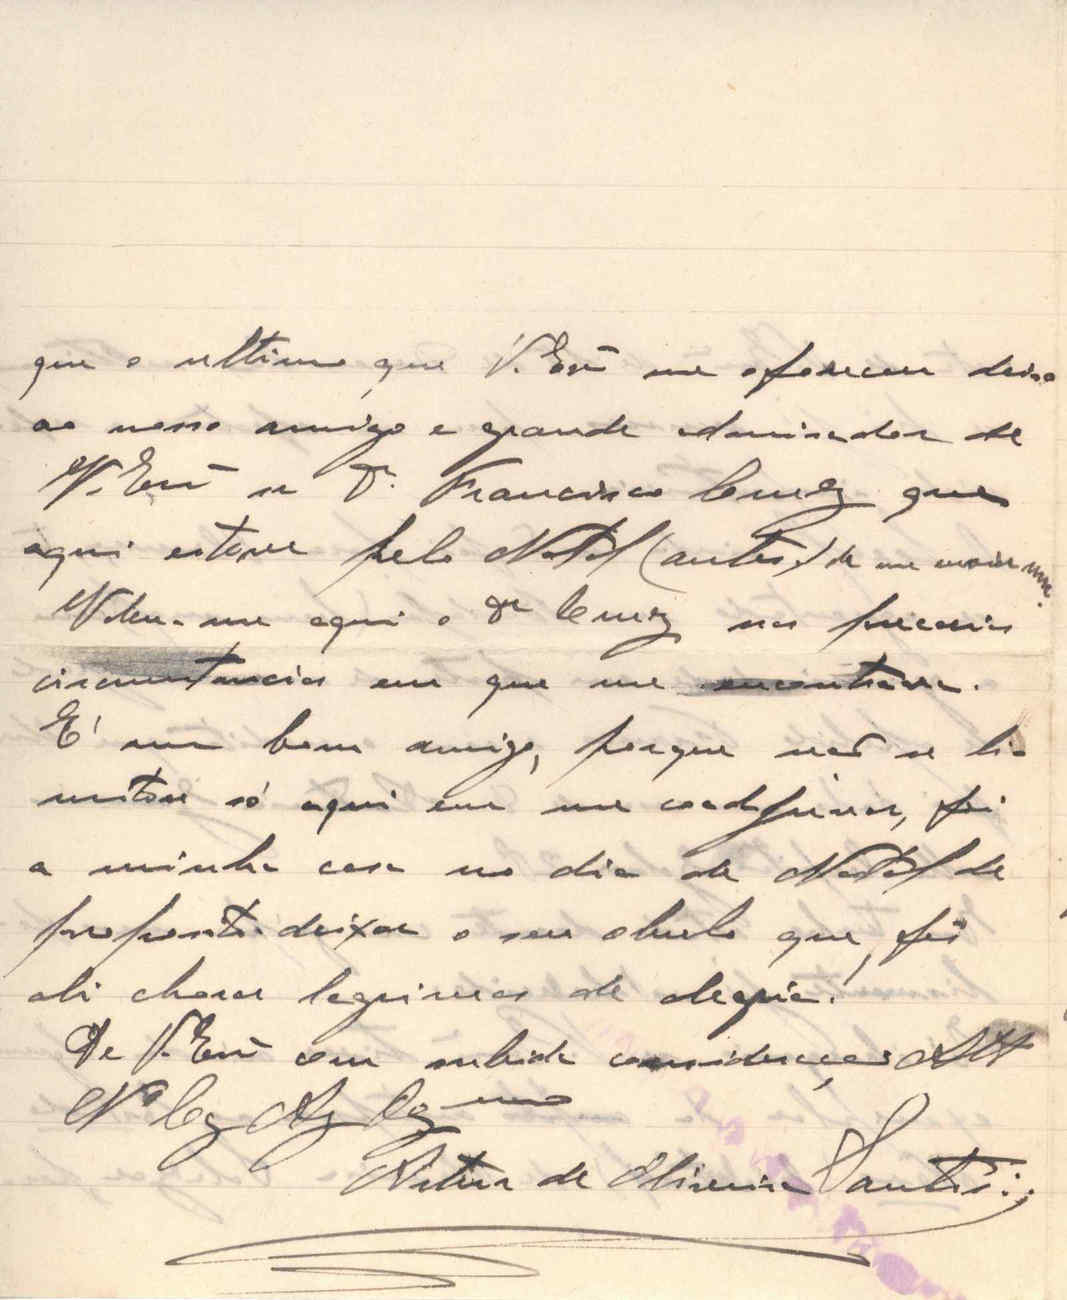 que o ultimo que V. Exª me ofereceu deixo
ao nosso amigo e grande admirador de
V. Exª sr Dr. Francisco Cruz que
aqui esteve pelo Natal (antes) de me
Valeu-me aqui o Dr Cruz nas precarias
circunstancias em que me encontrava.
É um bom amigo, porque não se li-
mitou só aqui em me coadjuvar, foi
a minha casa no dia de Natal de
proposito deixar o seu obulo que, fês
ali chorar lagrimas de alegria!
De V. Exª com subida consideração Attº
Vº Cº Ag Obgmo
Artur de Oliveira Santos